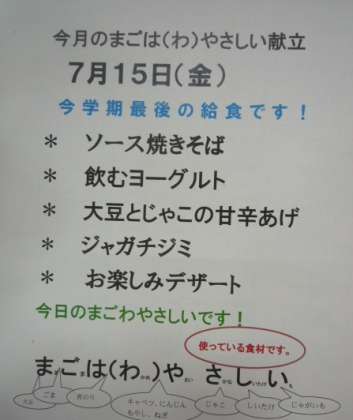 今月のまごは(わ)やさしい献立
7月15日(金)
今学期最後の給食です!
* ソース焼きそば
* 飲むヨーグルト
* 大豆とじゃこの甘辛あげ
* ジャガチジミ
* お楽しみデザート
今日のまごわやさしいです!
使っている食材です。
まめごまは(わ)かめやさいさかなしいたけいも
大豆
ごま
青のり
キャベツ、にんじん
もやし、ねぎ
じゃこ
しいたけ
じゃがいも